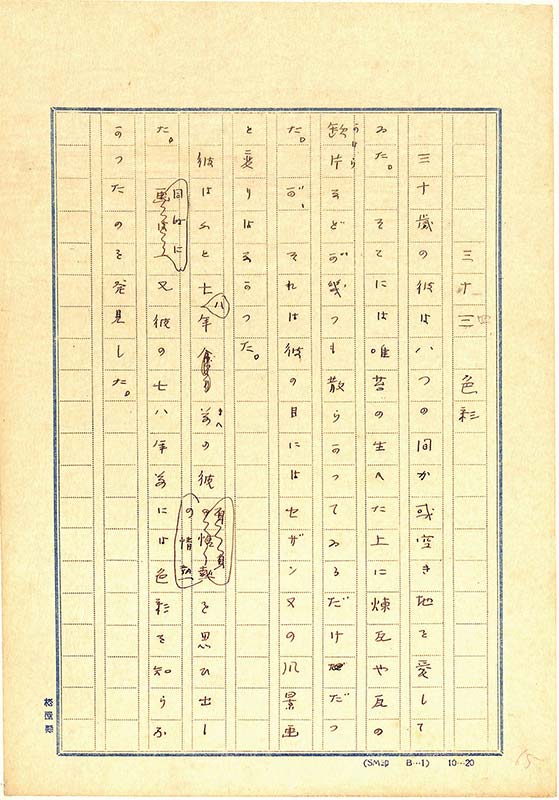 三十三四 色彩
三十歳の彼はいつの間か或空き地を愛して
ゐた。そこには唯苔の生へた上に煉瓦や瓦の
欠片などが幾つも散らかつてゐるだけだつ
かけら
た。が、それは彼の目にはセザンヌの風景画
と変りはなかつた。
彼はふと七八年前の彼の情熱を思ひ出し
まへ
た。同時に又彼の七八年前には色彩を知らな
かつたのを発見した。
松屋製
(SM印 B−1) 10−20
65